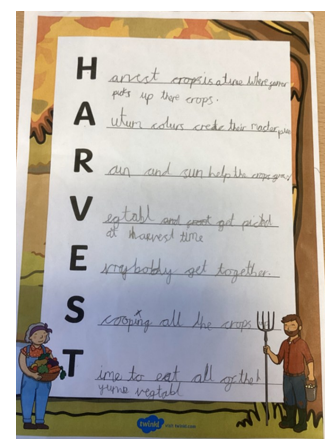 H arvest crops is a time where farmer
picks up there crops.
A utum colurs create their master
R ain and sun help the crops grow
V egtabl and get picked
at harvest time
E vrybobdy get together.
S cooping all the crops
T ime to eat all of the
yume vegtabl
twinkl